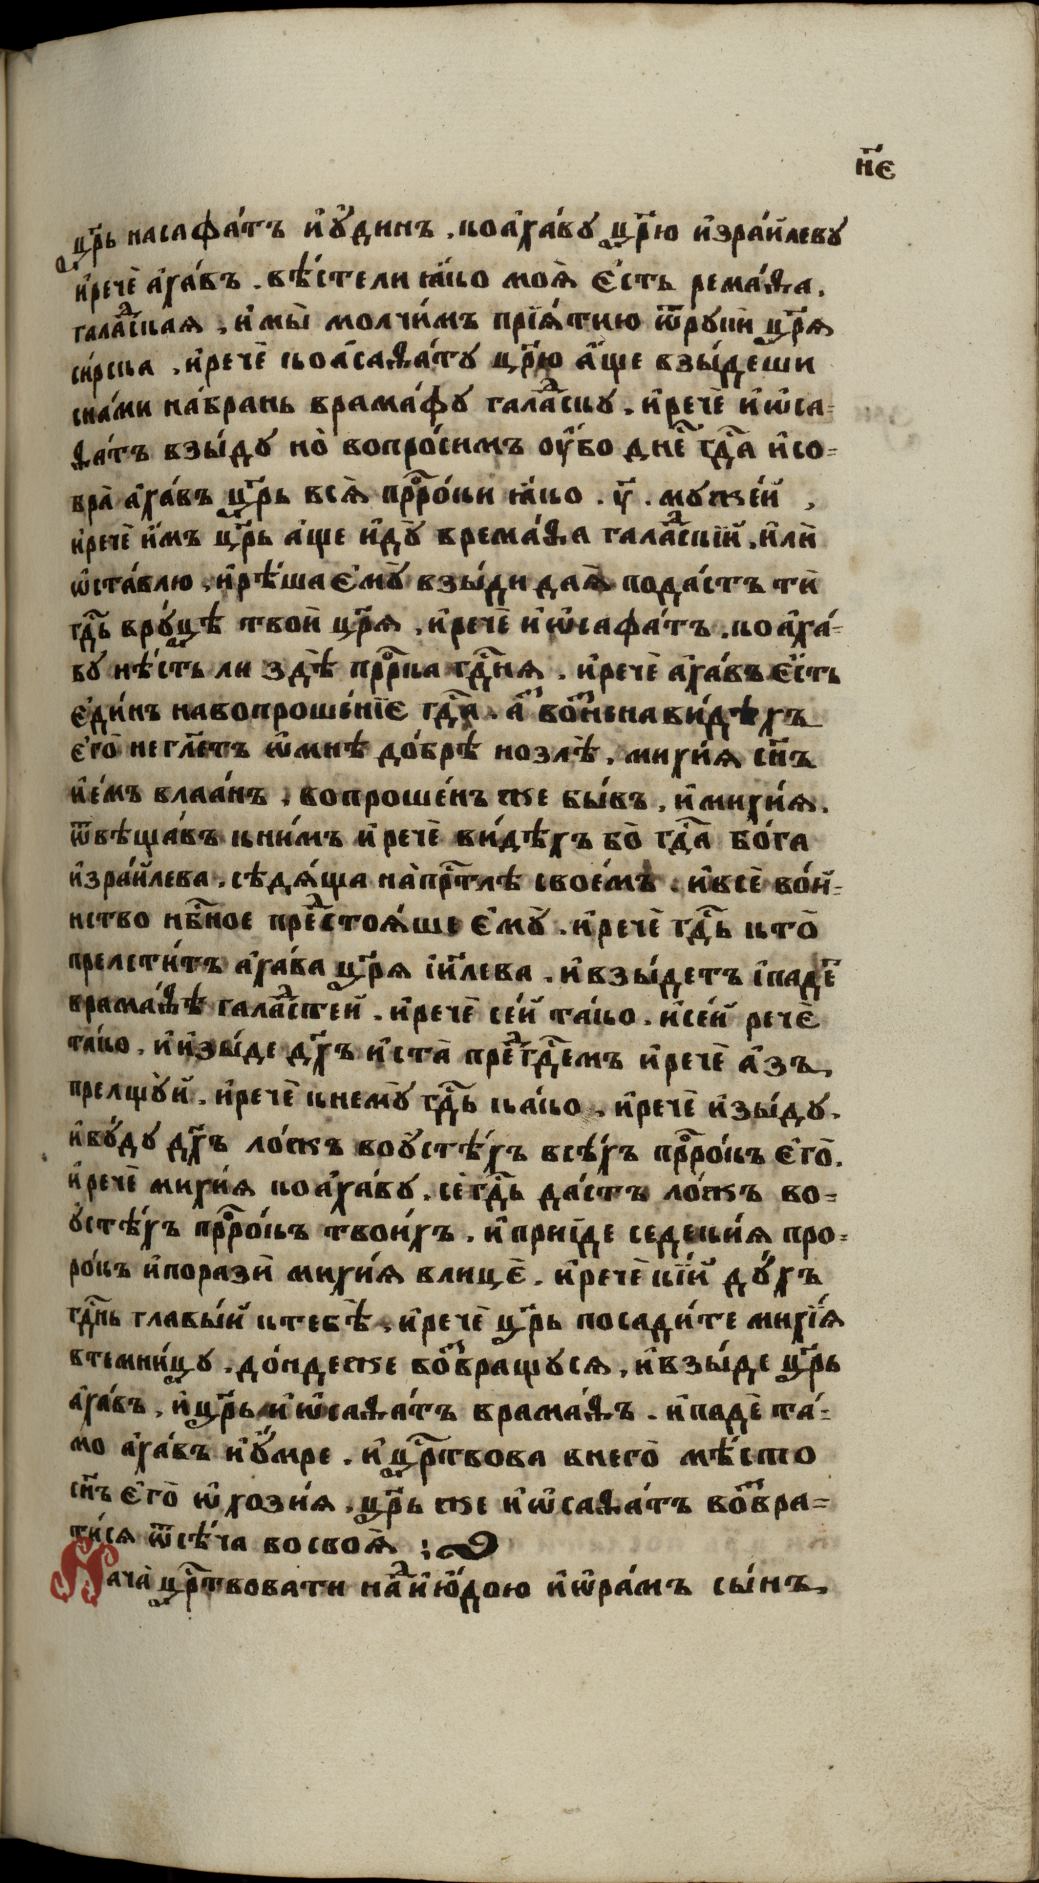 н҃є
цр҃ь иасафа́тъ и҆ю҆динъ . ко а҆ха́ву цр҃ю и҆зра́и҆леву
и҆речѐ а҆ха́въ . вѣ́сте ли ꙗ҆ко моѧ̀ є҆́сть рема́ѳа .
галаⷣ҇скаѧ , и҆ мы̀ молчи́мъ прїѧ́тию ѿ руки̑ цр҃ѧ
си́рска , и҆речѐ ко а҆саѳа́ту цр҃ю а҆́ще взы́деши
сна́ми на́брань врама́фу галаⷣ҇скꙋ . и҆речѐ и҆ѡ҆са-
ѳатъ взы́ду но̀ вопро́симъ оу҆́бо дне҇ гдⷭ҇а и҆со-
бра̀ а҆ха́въ цр҃ь всѧ̀ прⷪ҇ро́ки ꙗ҆ко . у҃ . муже́й ,
и҆речѐ и҆̀мъ цр҃ь а́ще и҆ду̀ врема́ѳа галаⷣ҇скїй . и҆лѝ
ѡ҆ста́влю . и҆рѣ́ша є҆му̀ взы́ди даѧ̀ пода́стъ тѝ
гдⷭ҇ь вру́цѣ твоѝ цр҃ѧ , и҆речѐ и҆ѡ҆сафа́тъ . ко а҆ха́-
ву нѣ́сть ли здѣ̀ прⷪ҇рка гдⷭ҇нѧ . и҆речѐ а҆ха́въ є҆́сть
є҆ди́нъ навопроше́нїє гдⷭ҇а . аⷥ҇ воⷥ҇ненави́дѣхъ
є҆го̀ не гл҃етъ ѡ҆мнѣ̀ до́брѣ но злѣ̀ . михи́ѧ сн҃ъ
и҆е́мъ влаа́нъ , вопроше́нъ же бы́въ , и҆ михи́ѧ .
ѿвѣща́въ к ни́мъ и҆ речѐ ви́дѣхъ бо̀ гдⷭ҇а бо́га
и҆зра́и҆лева . сѣдѧ́ща на̀ прⷭ҇тлѣ свое́мъ . и҆ всѐ во́и҆-
нство нбⷭ҇ное преⷣ҇стоѧ́ше є҆му̀ . и҆ речѐ гдⷭ҇ь кто̀
прелсти́тъ а҆ха́ва цр҃ѧ і҆и҃лева . и҆ взы́детъ і҆паде҇
врама́ѳѣ галаⷣ҇стей . и҆речѐ се́й та́ко . и҆се́й речѐ
та́ко . и҆ и҆зы́де дх҃ъ и҆ста̀ преⷣ҇ гдⷭ҇емъ и҆речѐ а҆́зъ ,
прелщу̀ й . и҆речѐ к нему̀ гдⷭ҇ь ка́ко . и҆речѐ и҆зы́ду .
и҆ву́ду дх҃ъ ло́жъ воу҆стѣ́хъ всѣ́хъ прⷪ҇ро́къ є҆го̀ .
и҆речѐ михи́ѧ ко а҆ха́ву . сѐ гдⷭ҇ь да́стъ ло́жъ во-
у҆стѣ́хъ прⷪ҇ро́къ твои́хъ . и҆ прии́де седеки́ѧ про-
ро́къ и҆поразѝ михи́ѧ влицѐ . и҆речѐ кїй ду́хъ
гдⷭ҇нь главы́й ктебѣ̀ , и҆речѐ цр҃ь посади́те михі́ѧ
втемни́цу . до́ндеже воⷥ҇вращуся , и҆ взы́де цр҃ь
а҆ха́въ , и҆ цр҃ь и҆ѡ҆саѳа́тъ врама́ѳъ . и҆ падѐ та́-
мо а҆ха́въ и҆ у҆́мре . и҆ црⷭ҇твова внего̀ мѣ́сто
сн҃ъ є҆го̀ ѡ҆хози́ѧ . цр҃ь же и҆ѡ҆саѳа́тъ воⷥ҇вра-
ти́ся ѿсѣ́ча восвоѧ̀ :
Нача̀ црⷭ҇твовати наⷣ҇ и҆ю҆́дою и҆ѡ҆ра́мъ сы́нъ ,